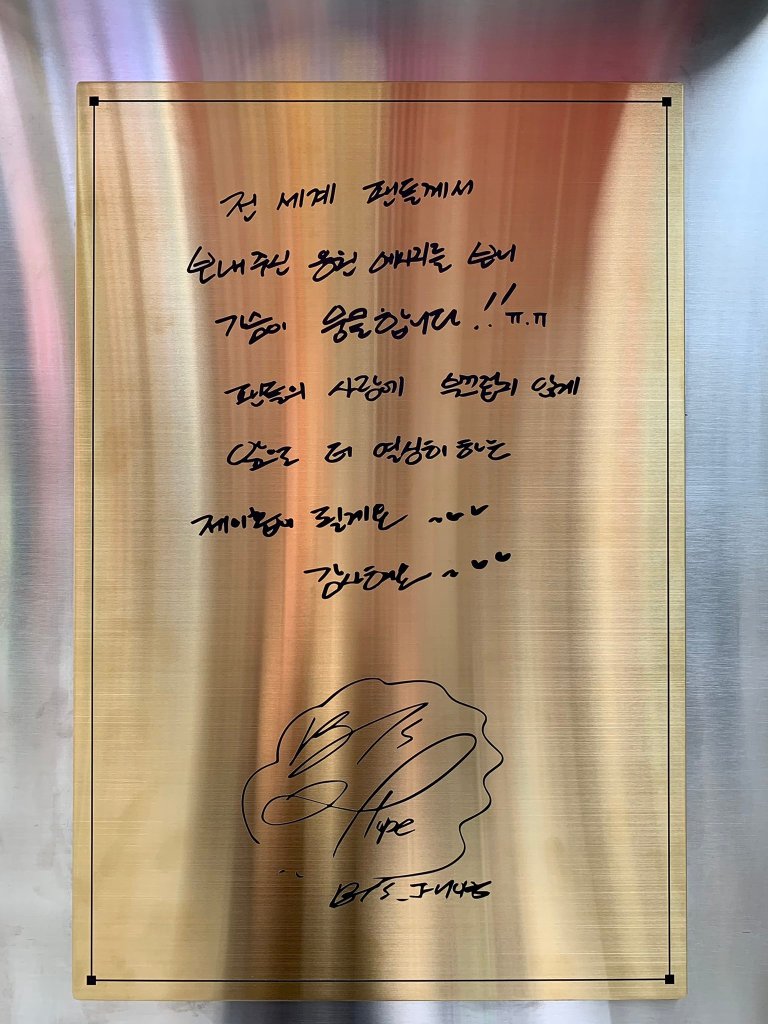 전 세계 팬들께서
보내주신 응원 메시지를 보니
가슴이 뭉클합니다!! ㅠ.ㅠ
팬들의 사랑에 부끄럽지 않게
앞으로 더 열심히 하는
제이홉이 될게요 ~
감사해요 ~
BTS
Hope
BTS_J-